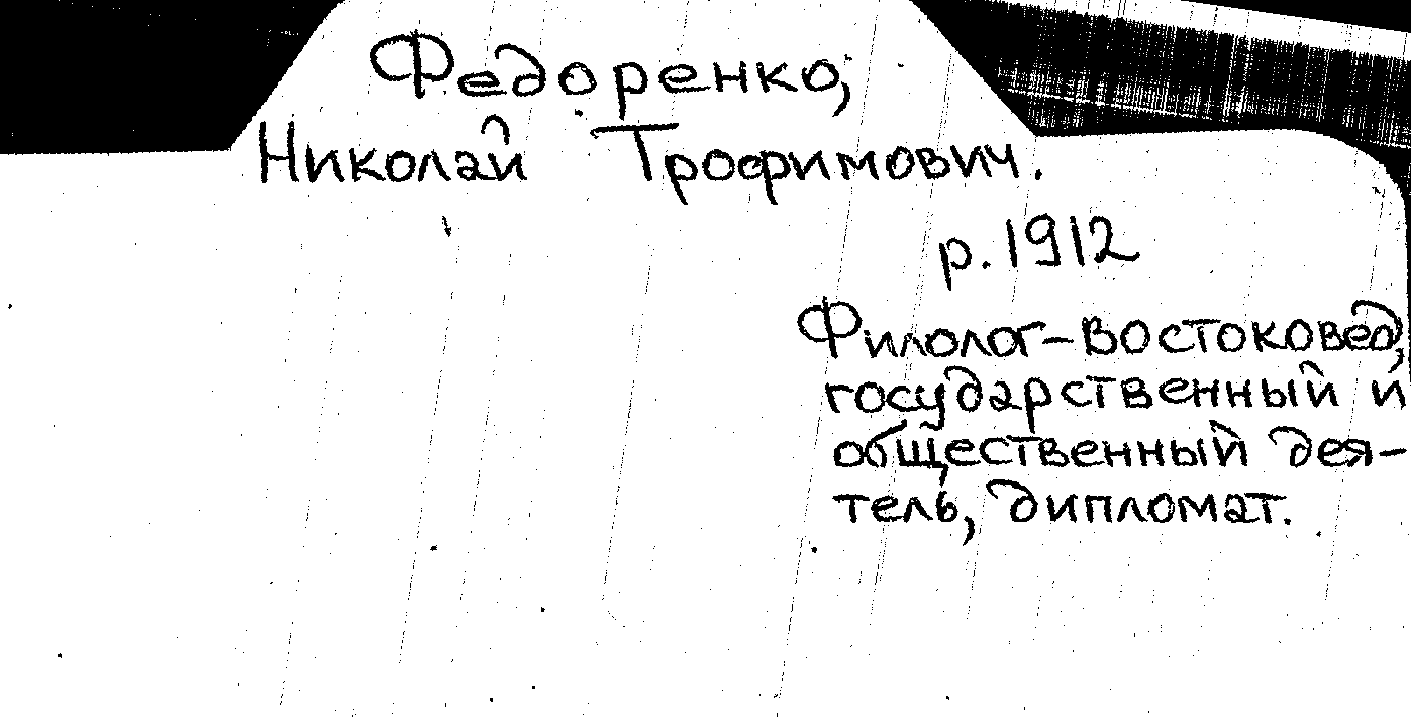 Федоренко,
Николай Трофимович.
р. 1912
Филолог-востоковед,
государственный и
общественный дея-
тель, дипломат.